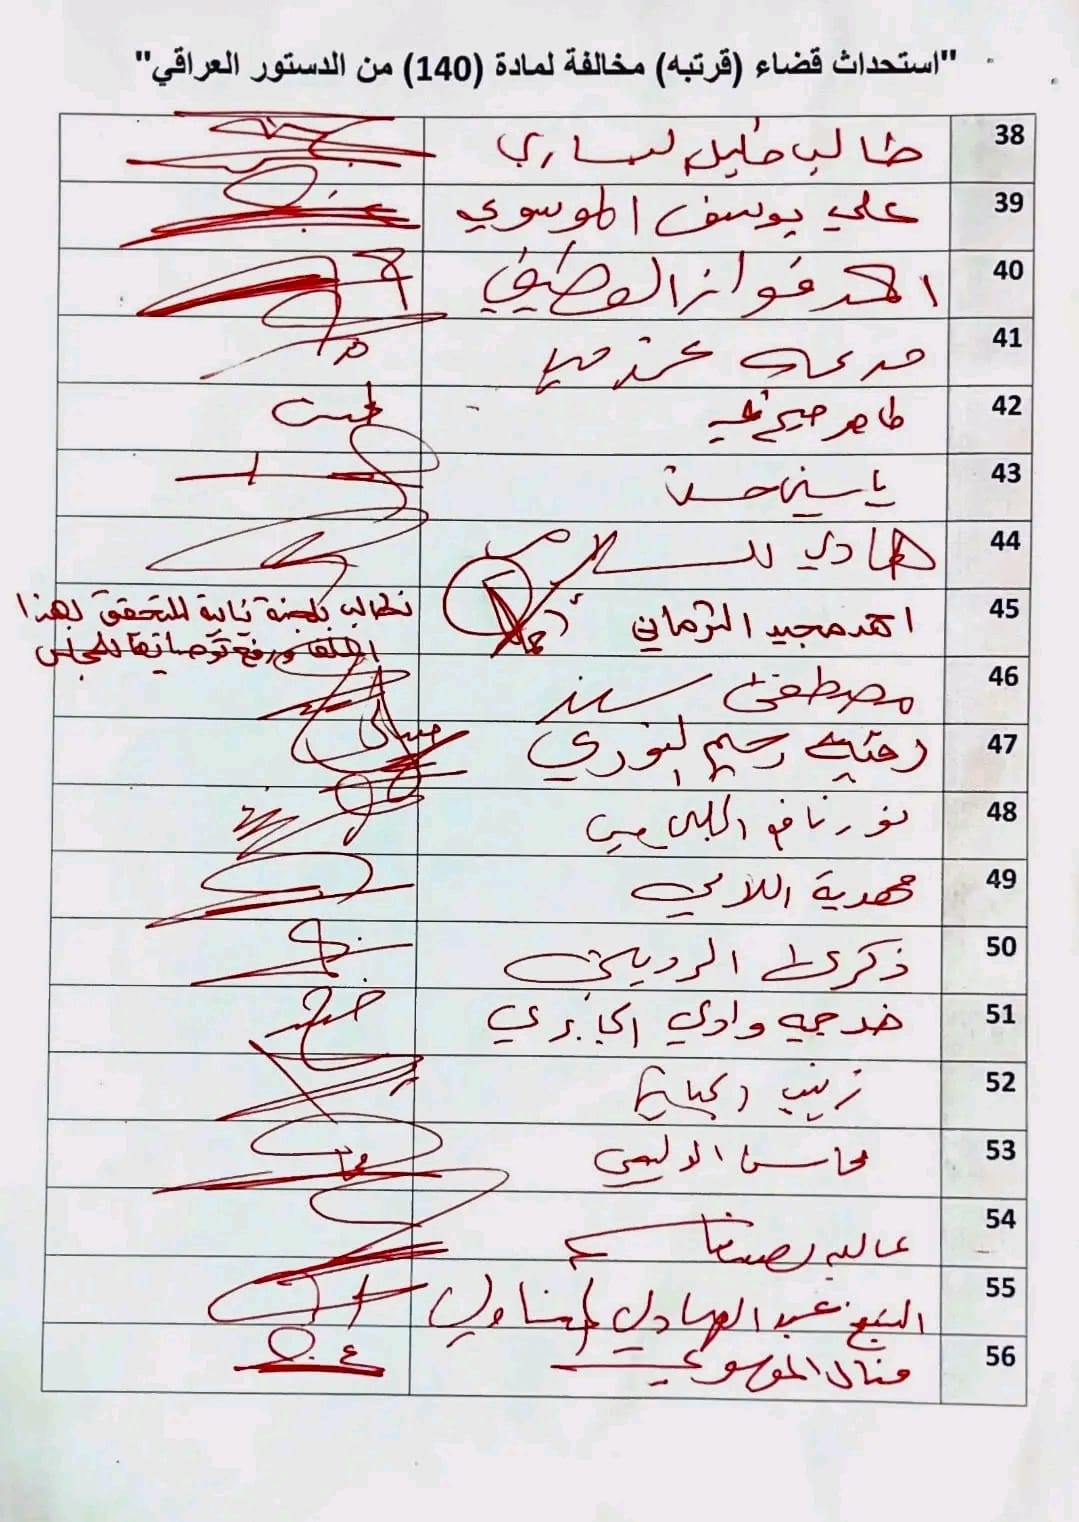 "استحداث قضاء (قرتبه) مخالفة لمادة (140) من الدستور العراقي"
38 طالب خليل
39 علي يوسف الموسوي
40 احمد فواز الوطيفي
41
42 طاهر
43 ياسين حسن
44 هادي السلامي
45 احمد مجيد الشرماني
نطالب بلجنة نيابية للتحقق لهذا
الملف ورفع توصياتها للمجلس
46 مصطفى سند
47 رقيه رحيم النوري
48 نور نافع الجليحاوي
49 مهدية اللامي
50 ذكرى الرديني
51 خديجه وادي الجابري
52 زينب
53 محاسن الدليمي
54 عاليه نصيف
55 الشيخ عبد الهادي الحسناوي
56 منال الموسوي